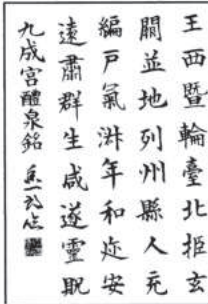 王西暨輪臺北拒玄
闕並地列州縣人充
編戶氣淑年和迩安
遠肅群生咸遂靈貺
九成宮醴泉銘